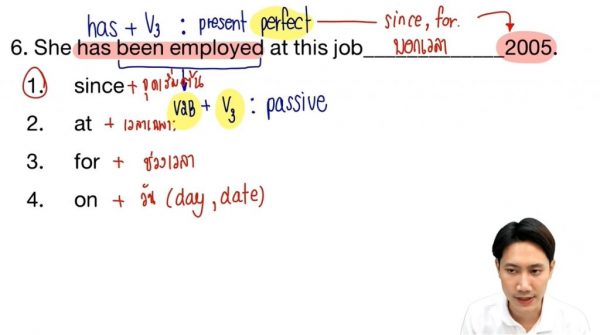 has + V₃ : present perfect — since, for
6. She has been employed at this job____บอกเวลา____2005.
1. since + จุดเริ่มต้น
V3B + V₃ : passive
2. at + เวลาเฉพาะ
3. for + ช่วงเวลา
4. on + วัน (day, date)